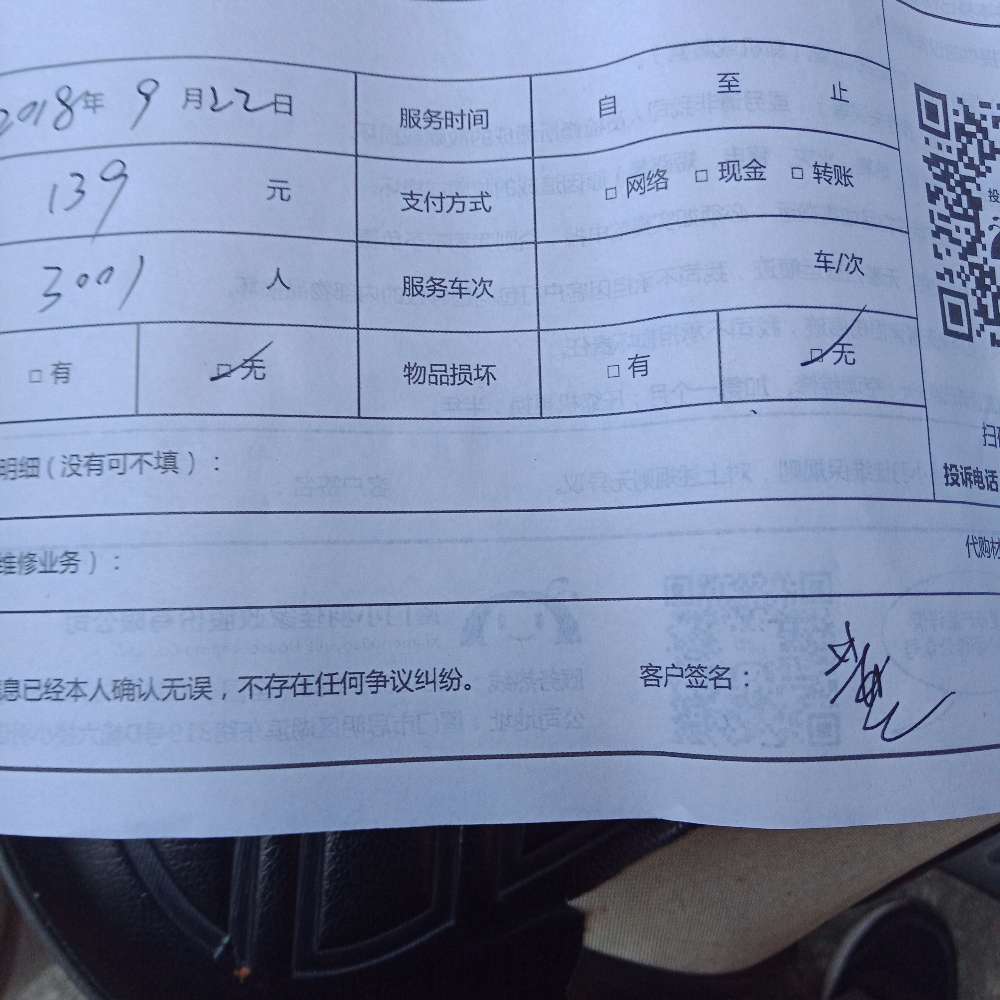 2018年 9月22日 服务时间 自 至 止
139 元 支付方式 □网络 □现金 □转账
3001 人 服务车次 车/次
□有 □无 物品损坏 □有 □无
明细(没有可不填)：
扫
投诉电话
维修业务)：
代购材
息已经本人确认无误，不存在任何争议纠纷。 客户签名：